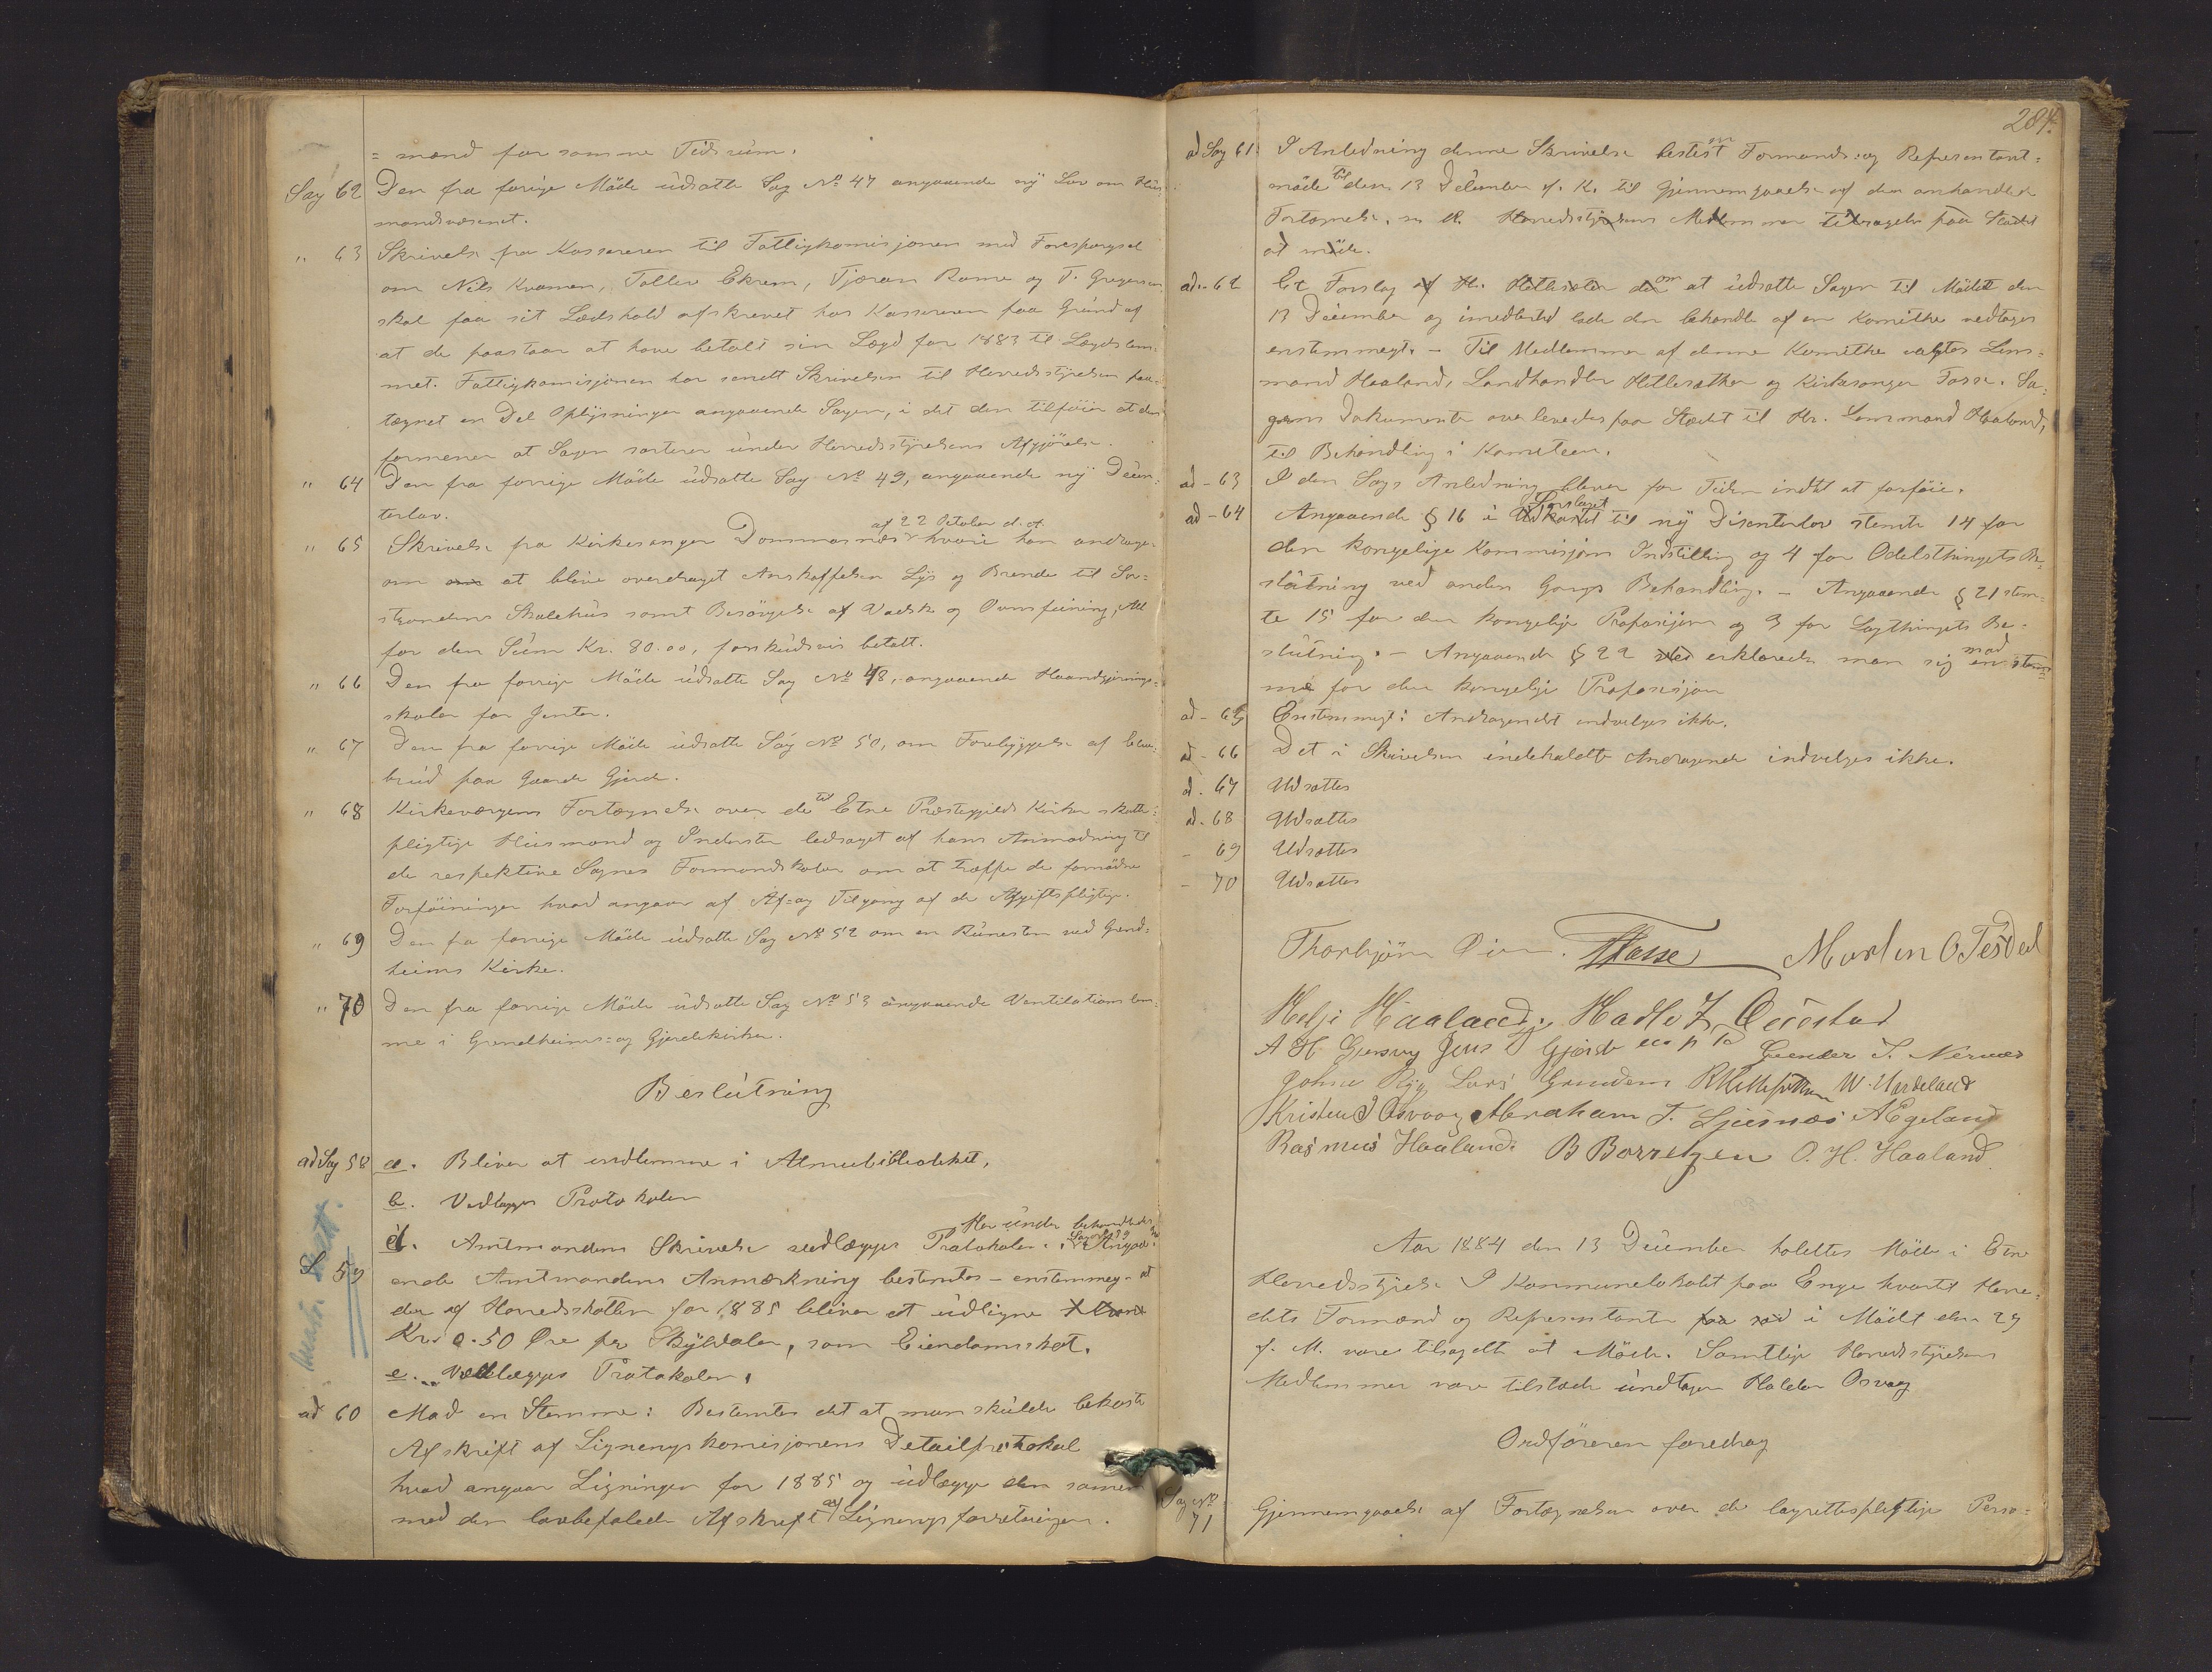 = mænd for samme Tidsrum.
Sag 62 Den fra forige Möde udsatte Sag No 47 angaaende ny Lov om Hus-
mandsvæsenet.
" 63 Skrivelse fra Kassereren til Fattigkomisjonen med Forespørgsel
om Nils Kvamen, Tollev Ekrem, Tjæran Rame og T. Gregersen
skal faa sit Lædshold afskrevet hos Kassereren paa Grund af
at de paastaar at have betalt sin Lægd for 1883 til Lægdslem-
met. Fattigkomisjonen har sendt Skrivelsen til Herredsstyrelsen paa-
tegnet en Del Oplysninger angaaende Sagen, i det den tilföier at den
formener at Sagen sorterer under Herredsstyrelsens Afgjörelse.
" 64 Den fra forrige Möde udsatte Sag No 49, angaaende ny Disen-
terlov.
" 65 Skrivelse fra Kirkesanger Dommasnes af 22 October d. A. hvori han andrager
om at blive overdraget Anskaffelsen Lys og Brende til Sør-
strandens Skolehus samt Besörgelse af Vadsk og Ovnsfeining, Alt
for den Sum Kr. 80.00, forskudsvis betalt.
" 66 Den fra forrige Möde udsatte Sag No 48, angaaende Haandgjernings-
skoler for Jenter.
" 67 Den fra forrige Möde udsatte Sag No 50, om Forebyggelse af
brud paa Gaarde Gjerde.
" 68 Kirkeværgens Fortegnelse over de til Etne Præstegjelds Kirker skatte-
pligtige Husmænd og Inderster ledsaget af hans Anmodning til
de respektive Sognes Formandskaber om at træffe de fornödne
Forföininger hvad angaar af Af= og Tilgang af de Afgiftspligtige.
" 69 Den fra forrige Möde udsatte Sag No 52 om en Runesten ved Grind-
heims Kirke.
" 70 Den fra forrige Möde udsatte Sag No 53 angaaende Ventilationslem-
me i Grindheims= og Gjerdekirken.
Beslutning
ad Sag 58 a. Bliver at indlemme i Almuebibliotheket.
b. Vedlægges Protokolen
d. Amtmandens Skrivelse vedlægges Protokolen. Herunder behandledes Sag No 59 Angaa-
S 59 ende Amtmandens Anmærkning bestemtes – enstemmeg – at
der af Herredsskatten for 1885 bliver at udligne
Kr. 0.50 Øre per Skylddaler, som Eiendomsskat.
e. Vedlægges Protokolen.
ad 60 Mod en Stemme: Bestemtes det at man skulde bekoste
Afskrift af Ligningskomisjonens Detailprotokol
hvad angaar Ligningen for 1885 og udlægge den sammen
med den lovbefalede Afskrift af Ligningsforretningen.
284.
ad Sag 61 I Anledning denne Skrivelse bestemtes Formands= og Representant=
möde til den 13 December d. A. til Gjennemgaaelse af den omhandlede
Fortegnelse. Herredsstyrelsens Medlemmer tilsagdes paa Stedet
at möde.
ad - 62 Et Forslag af Hr. Hetlesæter om at udsætte Sagen til Mödet den
13 December og imedlertid lade den behandle af en Komithe vedtoges
enstemmegt. – Til Medlemmer af denne Komithe valgtes Lens-
mand Haaland, Landhandler Hetlesæther og Kirkesanger Tasse. Sa-
gens Dokumenter overleveredes paa Stedet til Hr. Lensmand Haaland,
til Behandling i Komiteen.
ad - 63 I den Sags Anledning bliver for Tiden indtet at forföie.
ad - 64 Angaaende § 16 i Forslaget til ny Disenterlov stemte 14 for
den kongelige Kommisjons Indstilling og 4 for Odelsthingets Be-
slutning ved anden Gangs Behandling. – Angaaende § 21 stem-
te 15 for den kongelige Proposisjon og 3 for Lagthingets Be-
slutning. – Angaaende § 22 erklærede man sig med en stem-
me for den kongelige Proposisjon
ad - 65 Enstemmegt: Andragendet indvelges ikke.
ad - 66 Det i Skrivelsen indeholdte Andragende indvelges ikke.
ad. 67 Udsættes
ad. 68 Udsættes
- 69 Udsættes
- 70 Udsættes
Thorbjørn Øien. Tasse Morten O Tesdal
Helje Haaland Hadle T. Qvistad
A H Gjersvig Jens Gjerde Gunder T. Nernæs
Johne Rygg Lars Grindem R Hetlesæther W. Hardeland
Kristen J Osvaag Abraham T. Ljusnæs A Egeland
Rasmus Haaland B Borretzen O. H. Haaland
Aar 1884 den 13 December holdtes Möde i Etne
Herredsstyrelse I Kommunelokalet paa Enge hvortil Herre-
dets Formænd og Representanter i Mödet den 29
f. M. vare tilsagdt at Möde. Samtlige Herredsstyrelsens
Medlemmer vare tilstæde undtagen Halder Osvaag
Ordföreren foredrog
Sag No 71 Gjennemgaaelse af Fortegnelsen over de lagrettespligtige Perso-